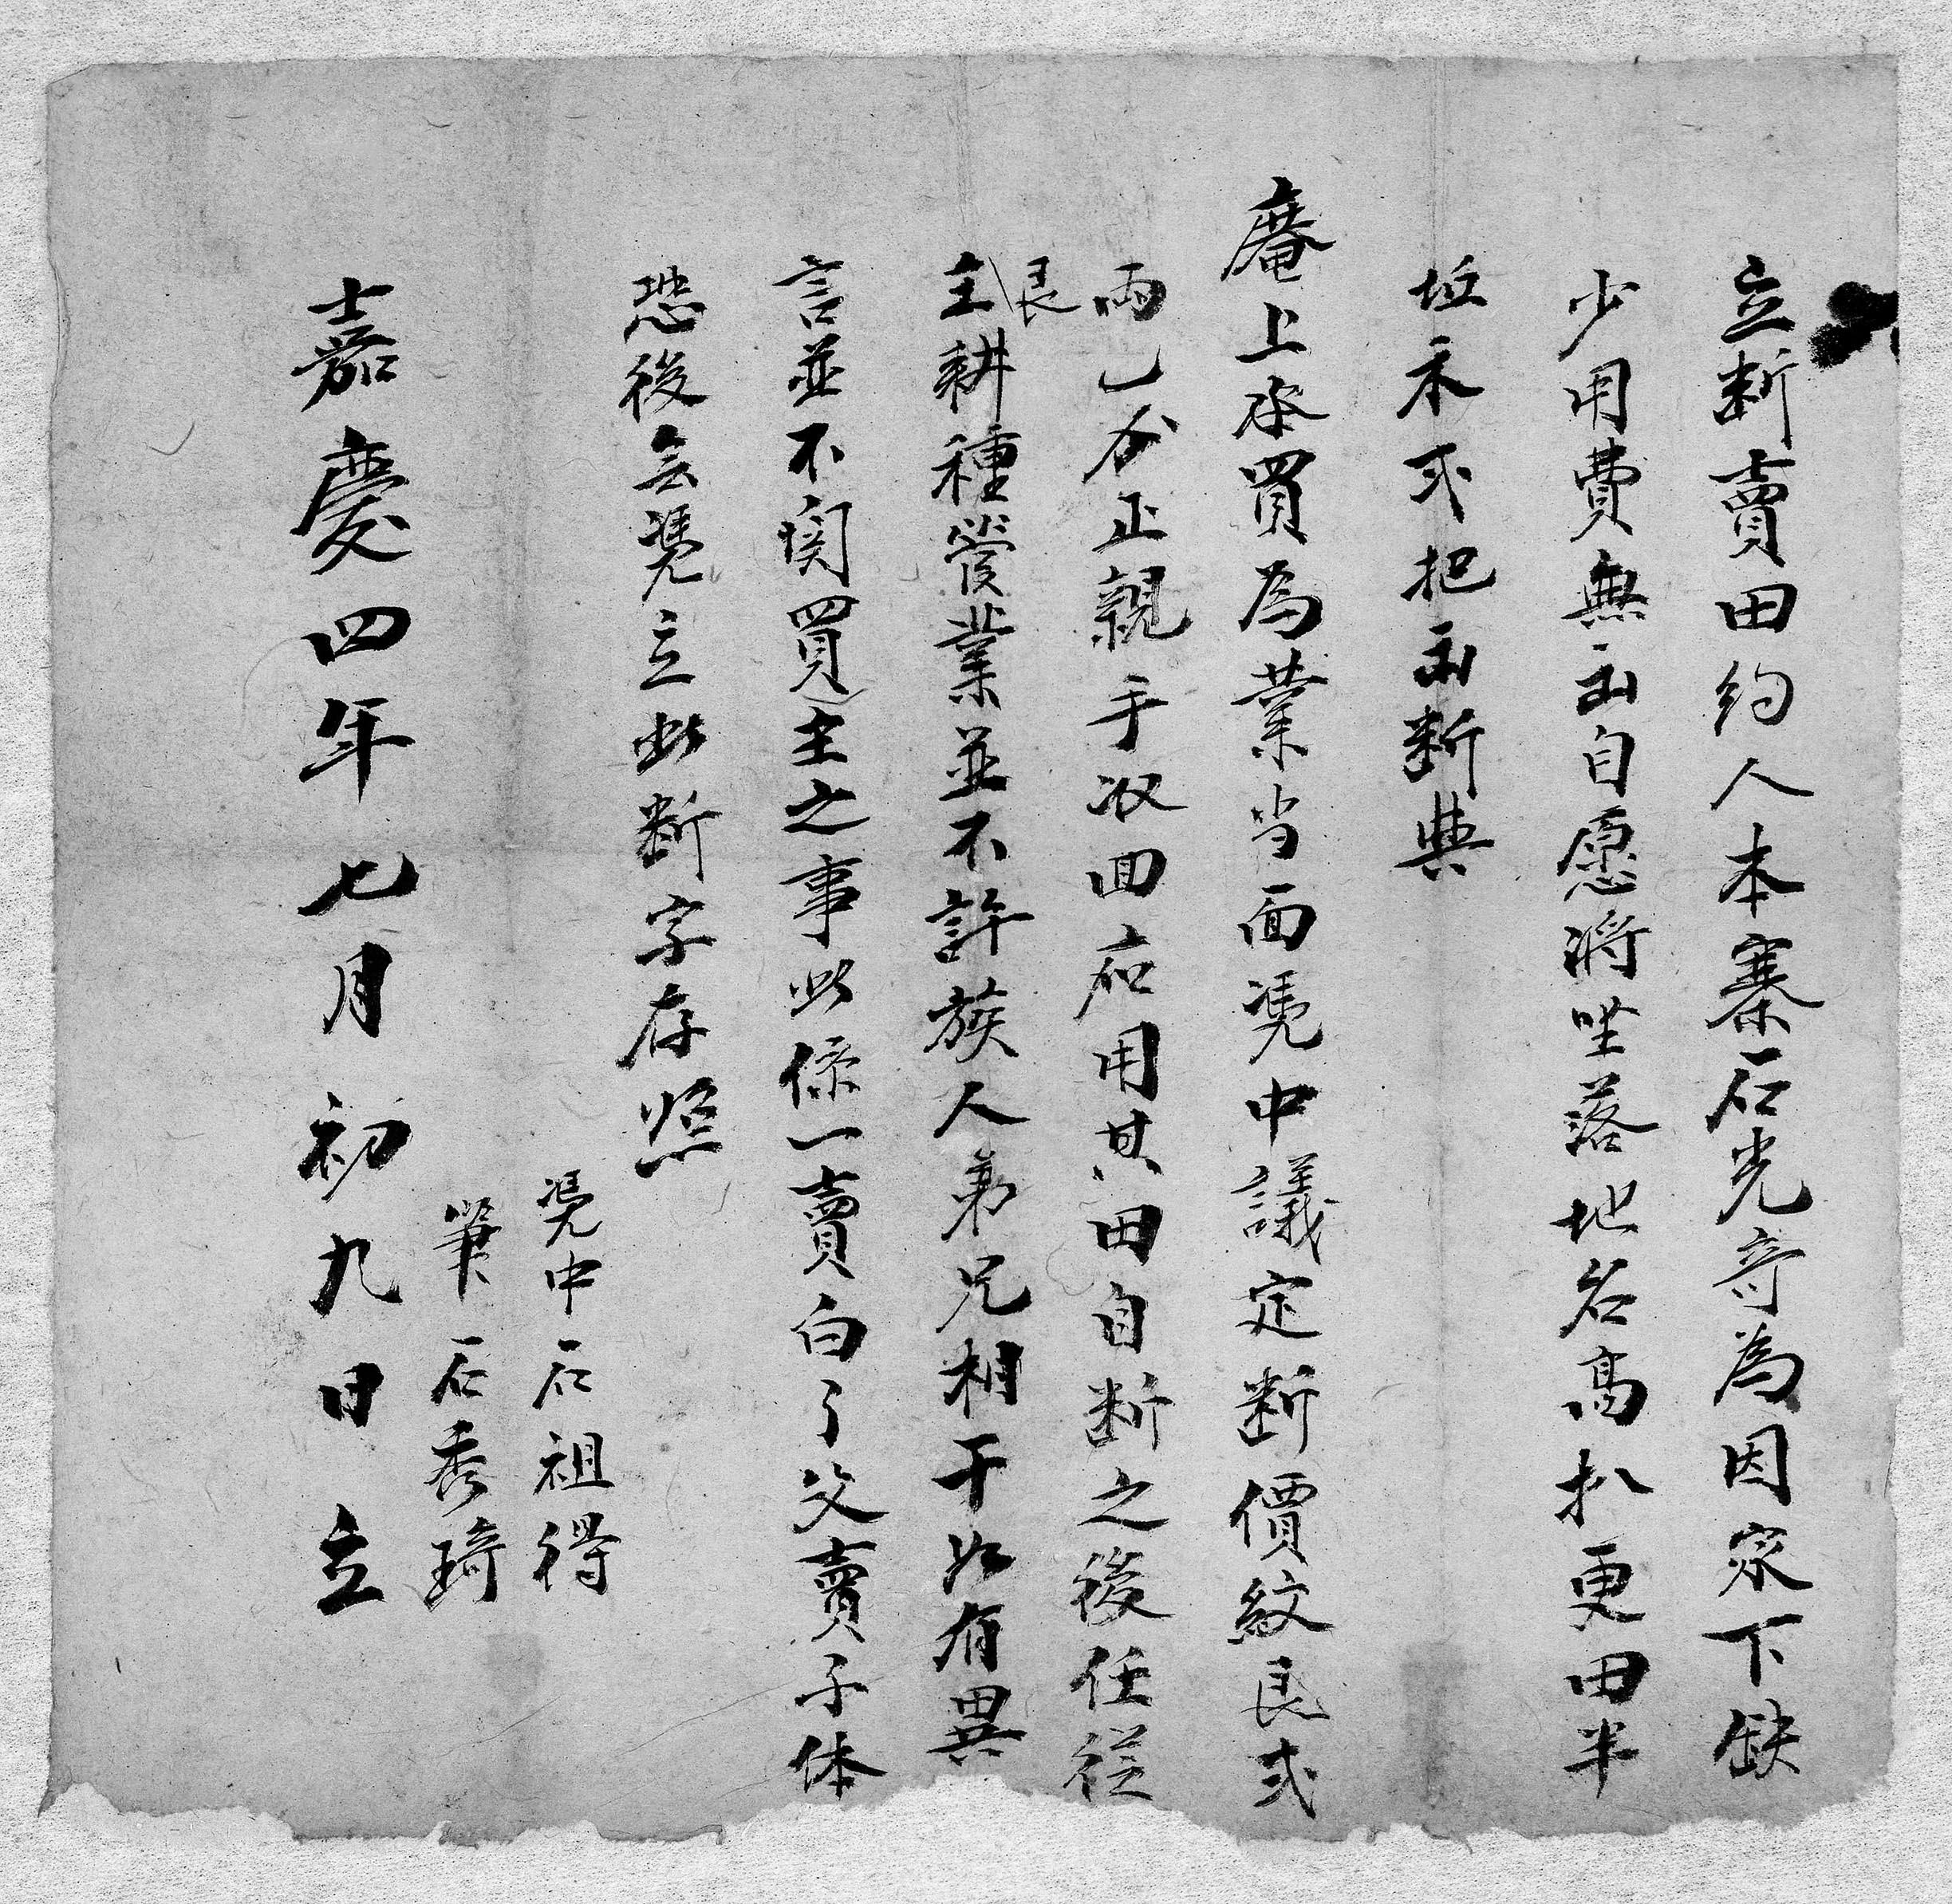 立断賣田約人本寨石光奇為因家下缺
少用費無出自愿將坐落地名高扒更田半
坵禾弍把出断與
庵上承買為業当面凴中議定断價紋艮弍
両乙分正親手收回应用其田自断之後任從
艮
主耕種管業並不許族人弟兄相干如有異
言並不関買主之事此係一賣白了父賣子休
恐後無凴立此断字存照
凴中石祖得
筆石秀琦
嘉慶四年七月初九日立